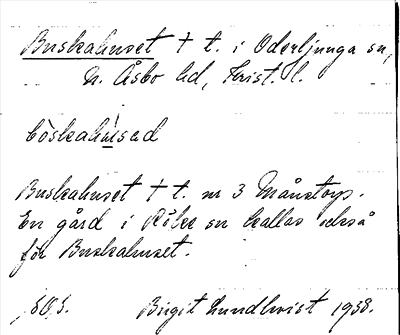 Buskahuset † t. i Oderljunga sn,
N. Åsbo hd, Krist. l.
bòskahùsad
Buskahuset † t. nr 3 Månstorp.
En gård i Röke sn kallas också
för Buskahuset.
Birgit Lundkvist 1938.